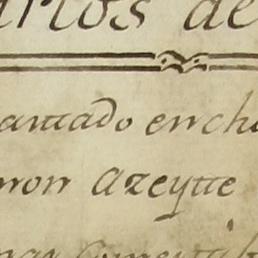 arlos de
antado en ch
mon azeytte